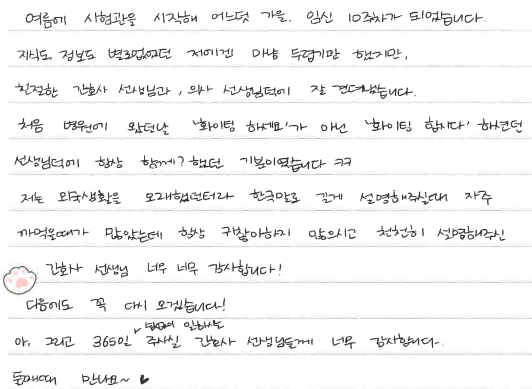 여름에 시험관을 시작해 어느덧 가을. 임신 10주차가 되었습니다.
지식도 정보도 별로없었던 저에겐 마냥 두렵기만 했지만,
친절한 간호사 선생님과, 의사 선생님덕에 잘 견뎌냈습니다.
처음 병원에 왔던날 '화이팅 하세요'가 아닌 '화이팅 합시다' 하셨던
선생님덕에 항상 함께? 했던 기분이였습니다 ㅋㅋ
저는 외국생활을 오래했던터라 한국말로 길게 설명해주실때 자주
까먹을때가 많았는데 항상 귀찮아하지 않으시고 천천히 설명해주신
간호사 선생님 너무 너무 감사합니다!
다음에도 꼭 다시 오겠습니다!
아, 그리고 365일 ✓ 주사실 간호사 선생님들께 너무 감사합니다.
둘째때 만나요~ ♥